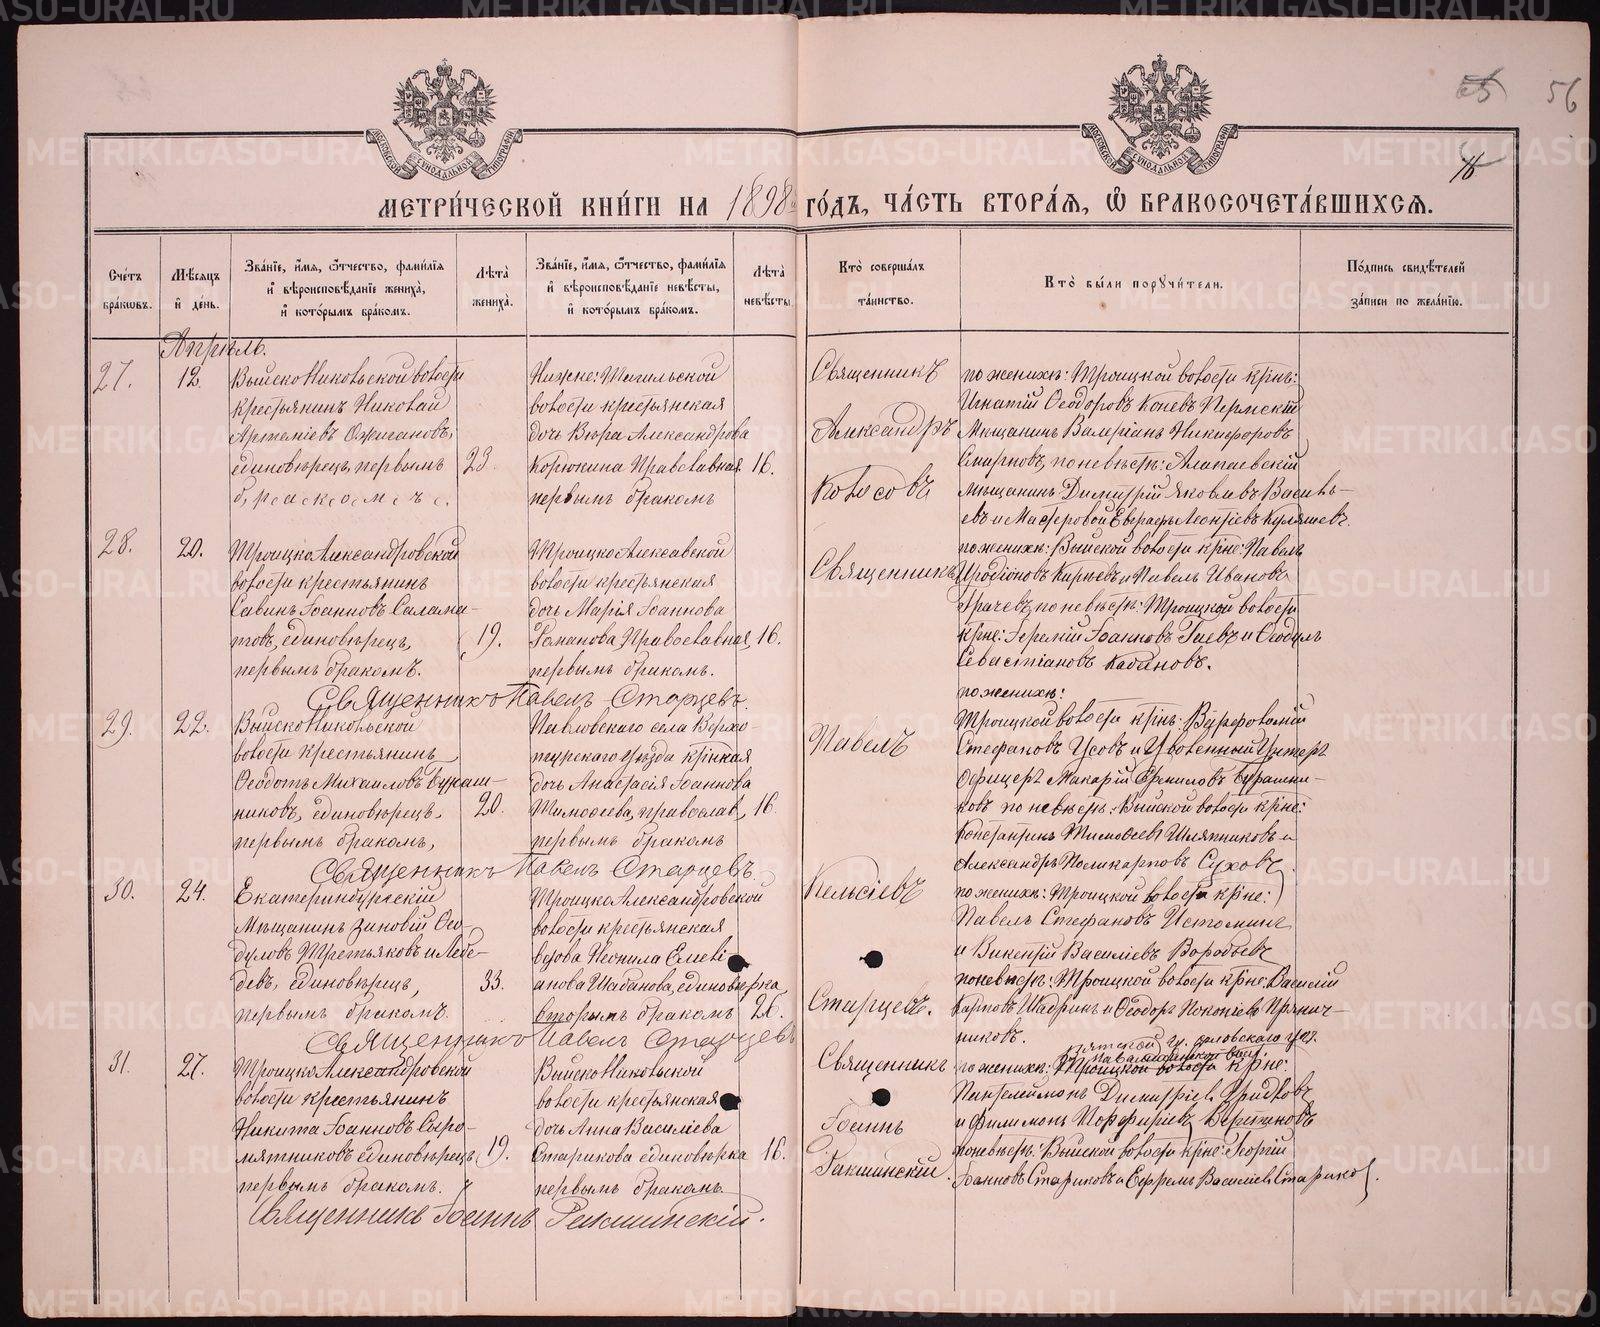 56
МЕТРИ́ЧЕСКОЙ КНИ́ГИ НА 1898 ГО́ДЪ, ЧА́СТЬ ВТОРА́Я, Ѽ БРАКОСОЧЕТА́ВШИХСЯ.
Сче́тъ бра́кѡвъ.
Мѣ́сяцъ и҆ де́нь.
Зва́нїе, и҆́мя, ѻ҆́тчество, фами́лїя и҆ вѣроисповѣ́данїе жениха̀, и҆ кото́рымъ бра́комъ.
Лѣ́та жениха̀.
Зва́нїе, и҆́мя, ѻ҆́тчество, фами́лїя и҆ вѣроисповѣ́данїе невѣ́сты, и҆ кото́рымъ бра́комъ.
Лѣ́та невѣ́сты.
Кто̀ соверша́лъ та́инство.
Кто̀ бы́ли порꙋчи́тели.
По́дпись свидѣ́телей за́писи по жела́нїю.
Апрѣль.
27.
12.
Выйско Никольской волости
крестьянинъ Николай
Артеміевъ Ожигановъ,
единовѣрецъ, первымъ
бракомъ.
23.
Нижне-Тагильской
волости крестьянская
дочь Вѣра Александрова
Корюкина Православная
первымъ бракомъ
16.
Священникъ
Александръ
Колосовъ
по женихѣ: Троицкой волости крне:
Игнатій Ѳеодоровъ Коневъ Пермскій
Мѣщанинъ Валеріанъ Никифоровъ
Смирновъ, по невѣстѣ: Алапаевскій
мѣщанинъ Димитрій Яковлевъ Василь-
евъ и Мастеровой Евграфъ Леонтіевъ Куляшевъ.
28.
20.
Троицко Александровской
волости крестьянинъ
Савинъ Іоанновъ Салама-
товъ, единовѣрецъ,
первымъ бракомъ.
19.
Троицко Алексавской
волости крестьянская
дочь Марія Іоаннова
Романова, Православная,
первымъ бракомъ.
16.
Священникъ
по женихѣ: Выйской волости крне: Павелъ
Иродіоновъ Кирьевъ и Павелъ Ивановъ
Грачевъ, по невѣстѣ: Троицкой волости
крне: Іеремій Іоанновъ Гаевъ и Ѳеодулъ
Севастіановъ Кабановъ.
Священникъ Павелъ Старцевъ.
29.
22.
Выйско Никольской
волости крестьянинъ
Ѳеодотъ Михаиловъ Бураш-
никовъ, единовѣрецъ,
первымъ бракомъ,
20.
Павловскаго села Верхо-
турскаго уѣзда крнкая
дочь Анастасія Іоаннова
Тимоѳеева, православ,
первымъ бракомъ
16.
Павелъ
по женихѣ:
Троицкой волости крнъ: Варѳоломій
Стефановъ Усовъ и Уволенный Унтеръ
Офицеръ Макарій Ермиловъ Бурашни-
ковъ по невѣстѣ: Выйской волости крне:
Константинъ Тимоѳеевъ Шляпниковъ и
Александръ Поликарповъ Суховъ.
Священникъ Павелъ Старцевъ.
30.
24.
Екатеринбургскій
Мѣщанинъ Зиновій Ѳео-
дуловъ Третьяковъ и Лебе-
девъ, единовѣрецъ,
первымъ бракомъ.
33.
Троицко Александровской
волости крестьянская
вдова Неонила Емелі-
анова Шабанова, единовѣрка,
вторымъ бракомъ
26.
Кельсіевъ
Старцевъ.
по женихѣ: Троицкой волости крне:
Павелъ Стефановъ Истоминъ
и Викентій Василіевъ Воробьевъ
по невѣстѣ: Троицкой волости крне: Василій
Карповъ Шадринъ и Ѳеодоръ Поконіевъ Прянич-
никовъ.
Священникъ Павелъ Старцевъ
31.
27.
Троицко Александровской
волости крестьянинъ
Никита Іоанновъ Сыро-
мятниковъ единовѣрецъ,
первымъ бракомъ.
19.
Выйско Никольской
волости крестьянская
дочь Анна Василіева
Старикова единовѣрка
первымъ бракомъ.
16.
Священникъ
Іоаннъ
Ракшинскій.
Вятской г. Орловскаго уѣз.
по женихѣ: Троицкой волости крне:
Пантелеимонъ Димитріевъ Гридковъ
и Филимонъ Порфиріевъ Вершановъ
по невѣстѣ: Выйской волости крне: Георгій
Іоанновъ Стариковъ и Ефремъ Василіевъ Стариковъ.
Священникъ Іоаннъ Ракшинскій.
METRIKI.GASO-URAL.RU